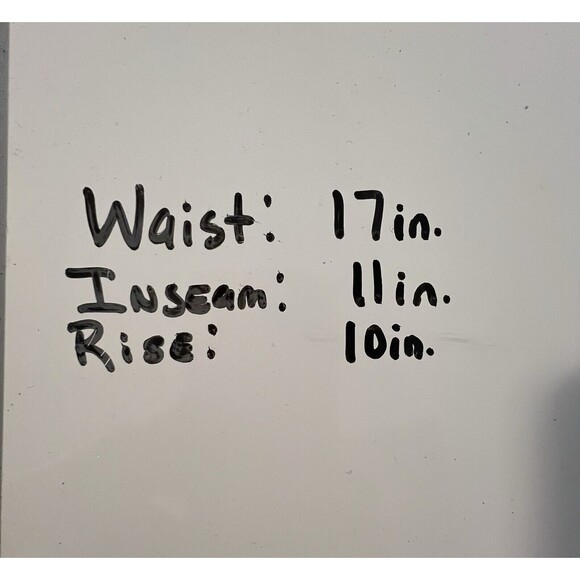 Waist: 17in.
Inseam: 11in.
Rise: 10in.